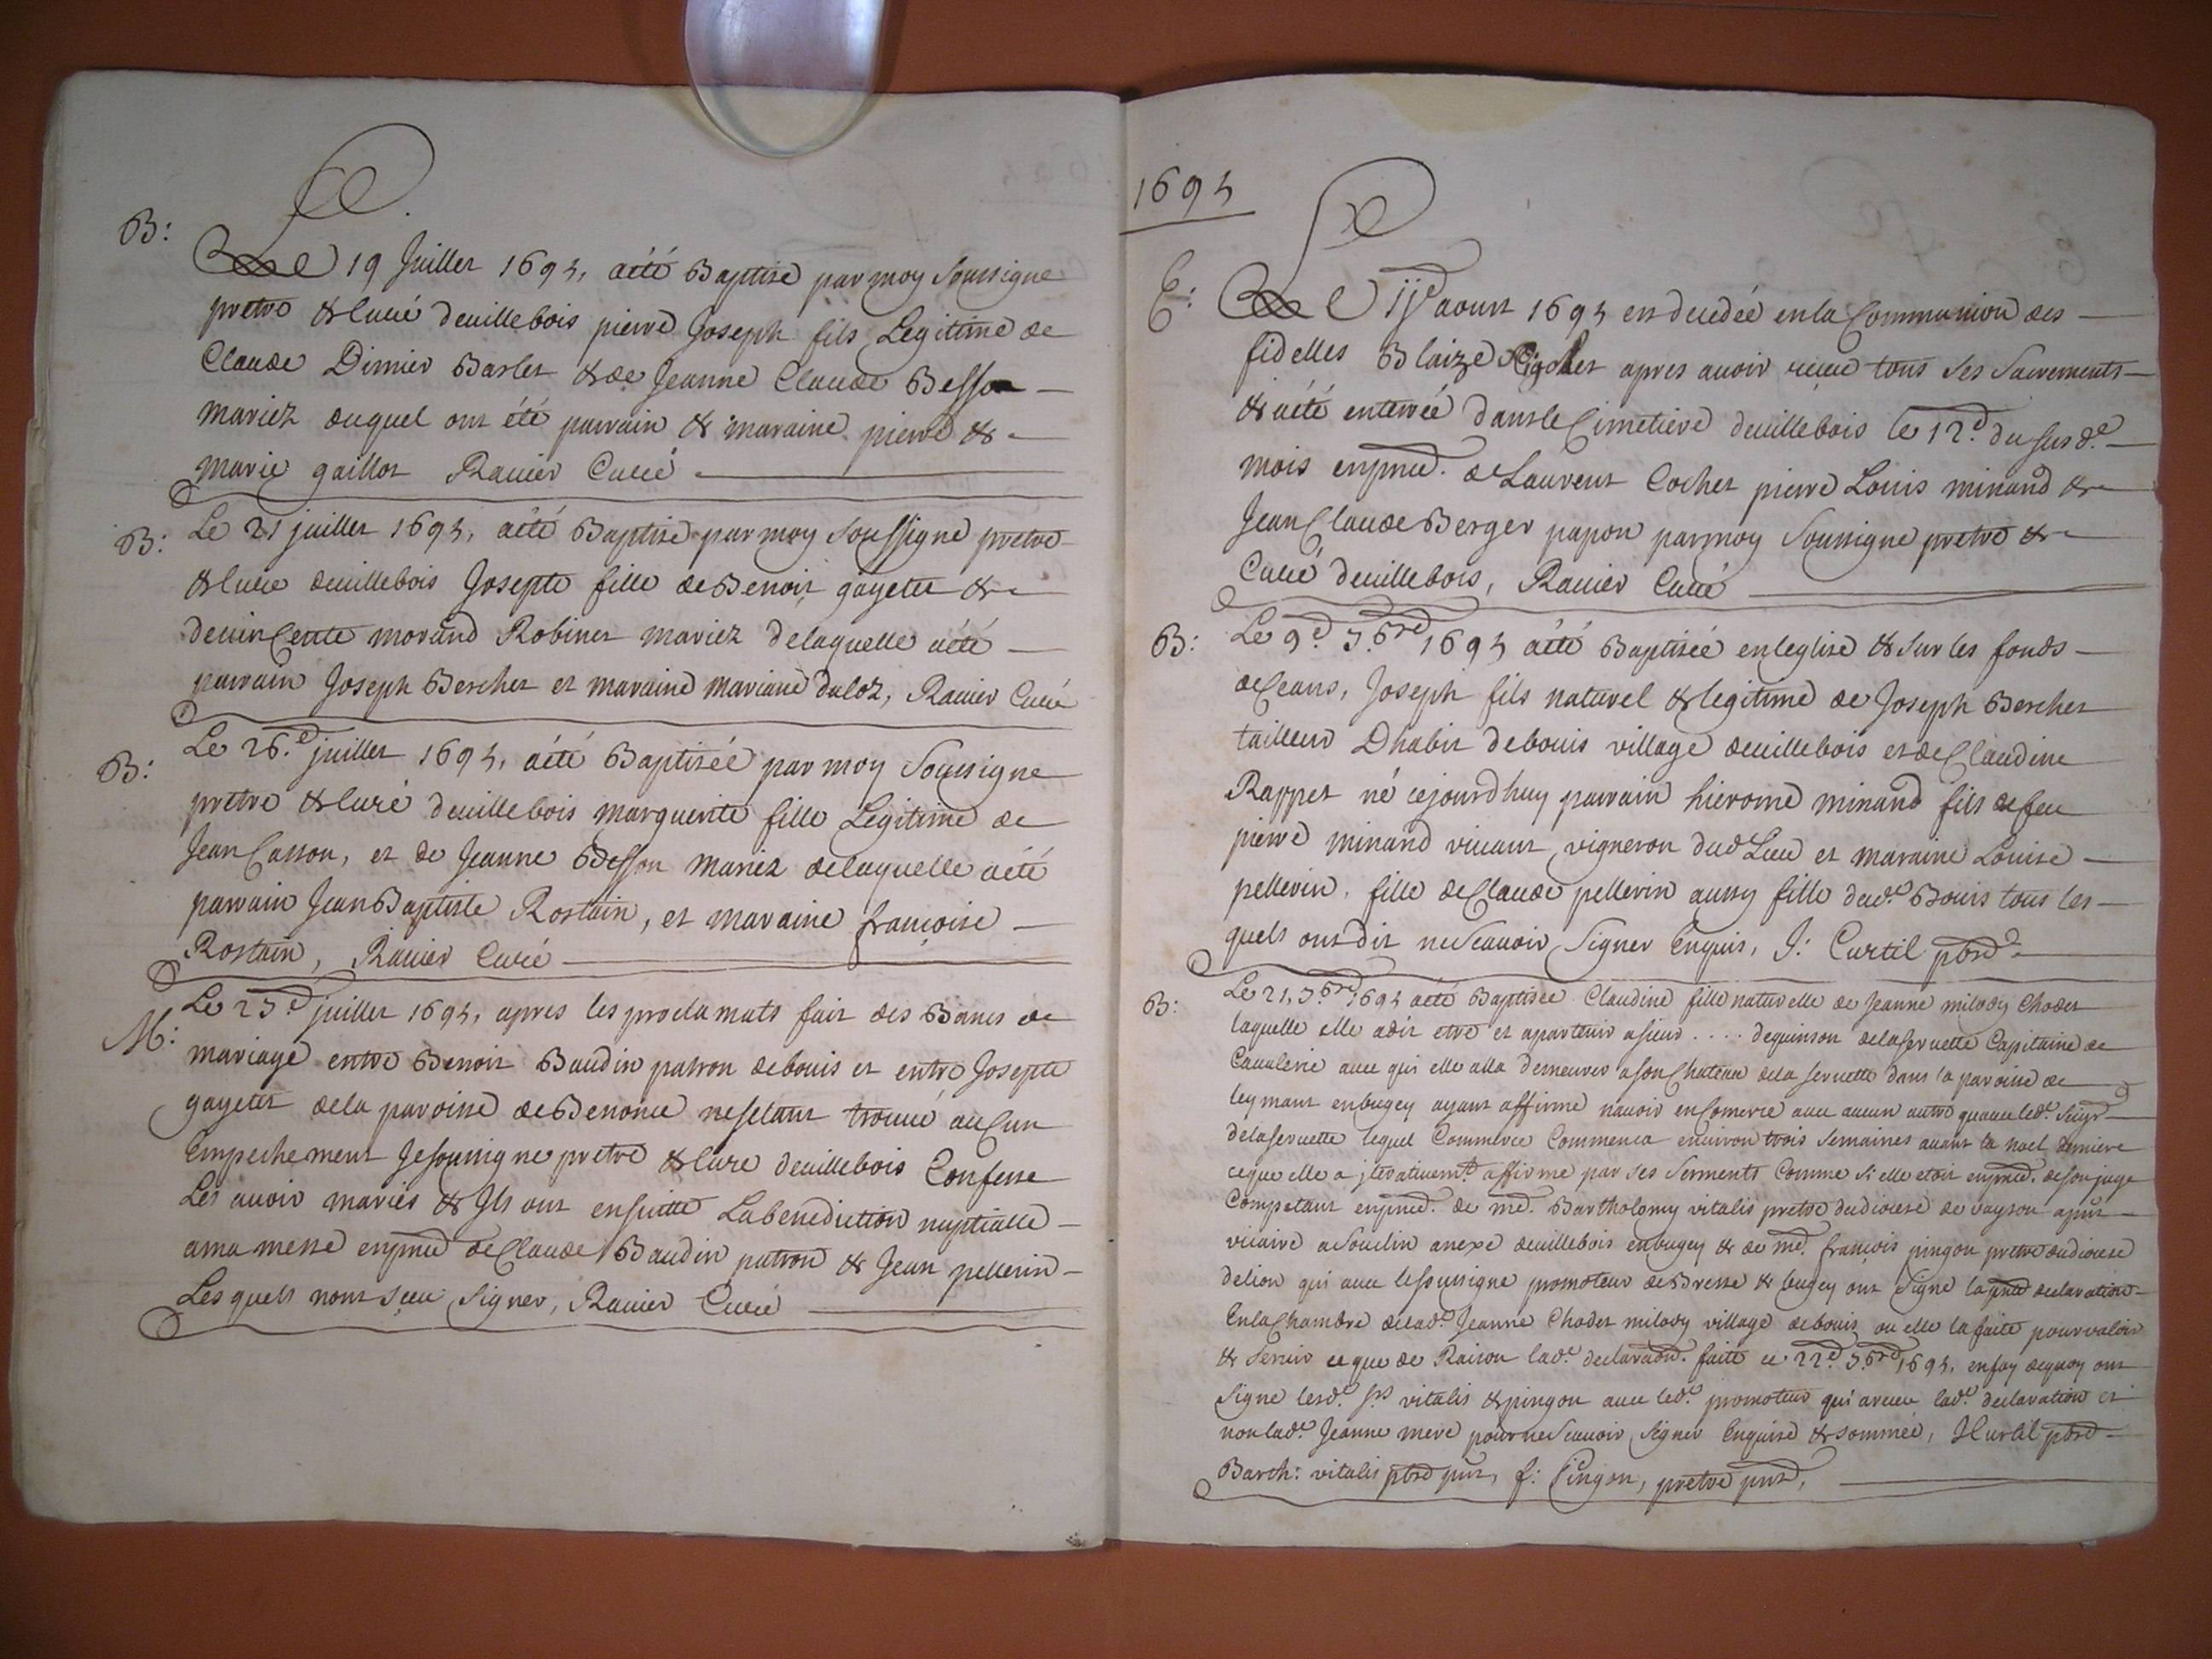 B:
Le 19 Juillet 1695, aété Baptisé par moy Soussigne
pretre & Curé deuillebois pierre Joseph fils Legitime de
Claude Dimier Barlet & de Jeanne Claude Besson —
mariez duquel ont été parrain & maraine pierre & —
marie gaillot Rauier Curé —
B: Le 21 juillet 1695, aété Baptisé par moy Soussigné pretre
& Cure deuillebois Josepte fille de Benoit gayetet & —
deuinCente morand Robinet mariez delaquelle aété —
parrain Joseph Berchet et maraine mariane duloz, Rauier Curé
B: Le 26.e juillet 1695, aété Baptiséé par moy Soussigne
pretre & Curé deuillebois marguerite fille Legitime de
Jean Casson, et de Jeanne Besson Mariez delaquelle aété
parrain JeanBaptiste Rostain, et maraine françoise —
Rostain, Rauier Curé —
M: Le 25e juillet 1695, apres les proclamats fait des Bancs de
mariage entre Benoit Baudin patron debouis et entre Josepte
gayetet dela paroisse deBenonce neseLant trouué auCun
Empechement Jesoussigne pretre & Cure deuillebois Confesse
Les auoir mariés & Jls ont ensuitte Labenediction nuptialle —
ama messe enpnce deClaude Baudin patron & Jean pellerin —
Lesquels nont sceu signer, Rauier Curé —
1695
E: Le 11e aoust 1695 est decedéé enla Communion des —
fidelles Blaize apres auoir receu tous ses Sacrements —
& aété enterréé dansle Cimetiere deuillebois le 12.e du susd.e —
mois enpnce. deLaurent Cochet pierre Louis minand & —
JeanClaude Berger papon parmoy Soussigne pretre & —
Curé deuillebois, Rauier Curé —
B: Le 9.e 7.bre 1695 aété Baptiséé enleglise & sur les fonds —
deCeans, Joseph fils naturel & legitime de Joseph Berchet
tailleur Dhabit debouis village deuillebois et deClaudine
Rappet né cejourdhuy parrain hierome minand fils defeu
pierre minand viuant, vigneron dud Lieu et maraine Louise —
pellerin, fille deClaude pellerin aussy fille dud.e Bouis tous les —
quels ont dit neScauoir Signer Enquis, J: Curtil pbre —
B: Le 21, 7.bre 1695 aété Baptisee Claudine fille naturelle de Jeanne milody Chodet
laquelle elle adit etre et apartenir asieur . . . . dequinson delaseruette Capitaine de
Caualerie auec qui elle alla demeurer asonChateau dela seruette dans la paroisse de
leymant enbugey ayant affirme nauoir euComerce auec aucun autre quauec led.e Sieur
delaseruette lequel Commerce Commenca enuiron trois semaines auant la noel derniere
ceque elle a jteratiuemt. affirme par ses serments Comme si elle etoit enpnce. deson juge
Competant enpnce. de me. Bartholomy vitalis pretre dudiocese de vayson apnt
vicaire aSouclin anexe deuillebois enbugey & de me. françois pingon pretre dudiocese
delion qui auec lesoussigne promoteur deBresse & bugey ont signe lapnte declaration
EnlaChambre delad.e Jeanne Chodet milody village debouis ou elle la faite pourvaloir
& seruir ceque de Raison lad.e declaraõn. faite ce 22.e 7.bre 1695, enfoy dequoy ont
signe lesd.e srs vitalis & pingon auec led.e promoteur qui areceu lad.e declaration et
non lad.e Jeanne mere pour neScauoir signer Enquise & sommee, JCurtil pbre —
Barth: vitalis pbre pnt, f: Pingon, pretre pnt, —